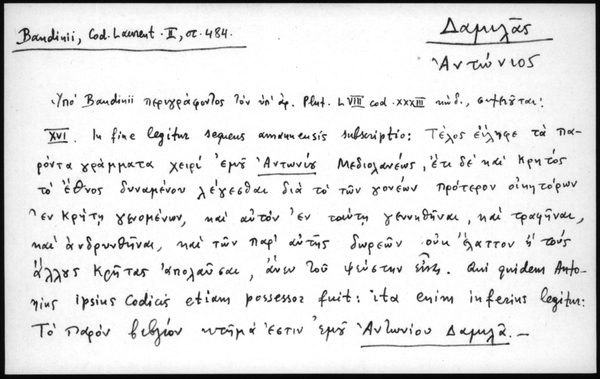 Bandinii, Cod. Laurent. II, σ. 484.
Δαμιλᾶς
Ἀντώνιος
Ὑπὸ Bandinii περιγράφοντος τὸν ὑπ' ἀρ. Plut. LVIII cod. XXXIII κώδ., σημειοῦται:
XVI. In fine legitur sequens amanuensis subscriptio: Τέλος εἴληφε τὰ πα-
ρόντα γράμματα χειρὶ ἐμοῦ Ἀντωνίου Μεδιολανέως, ἔτι δὲ καὶ Κρητὸς
τὸ ἔθνος δυναμένου λέγεσθαι διὰ τὸ τῶν γονέων πρότερον οἰκητόρων
ἐν Κρήτῃ γενομένων, καὶ αὐτὸν ἐν ταύτῃ γεννηθῆναι, καὶ τραφῆναι,
καὶ ἀνδρυνθῆναι, καὶ τῶν παρ' αὐτῆς δωρεῶν οὐκ ἔλαττον ἢ τοὺς
ἄλλους Κρῆτας ἀπολαῦσαι, ἄνευ τοῦ ψεύστην εἶναι. Qui quidem Anto-
nius ipsius Codicis etiam possessor fuit: ita enim inferius legitur:
Τὸ παρὸν βιβλίον κτῆμά ἐστιν ἐμοῦ Ἀντωνίου Δαμιλᾶ. —